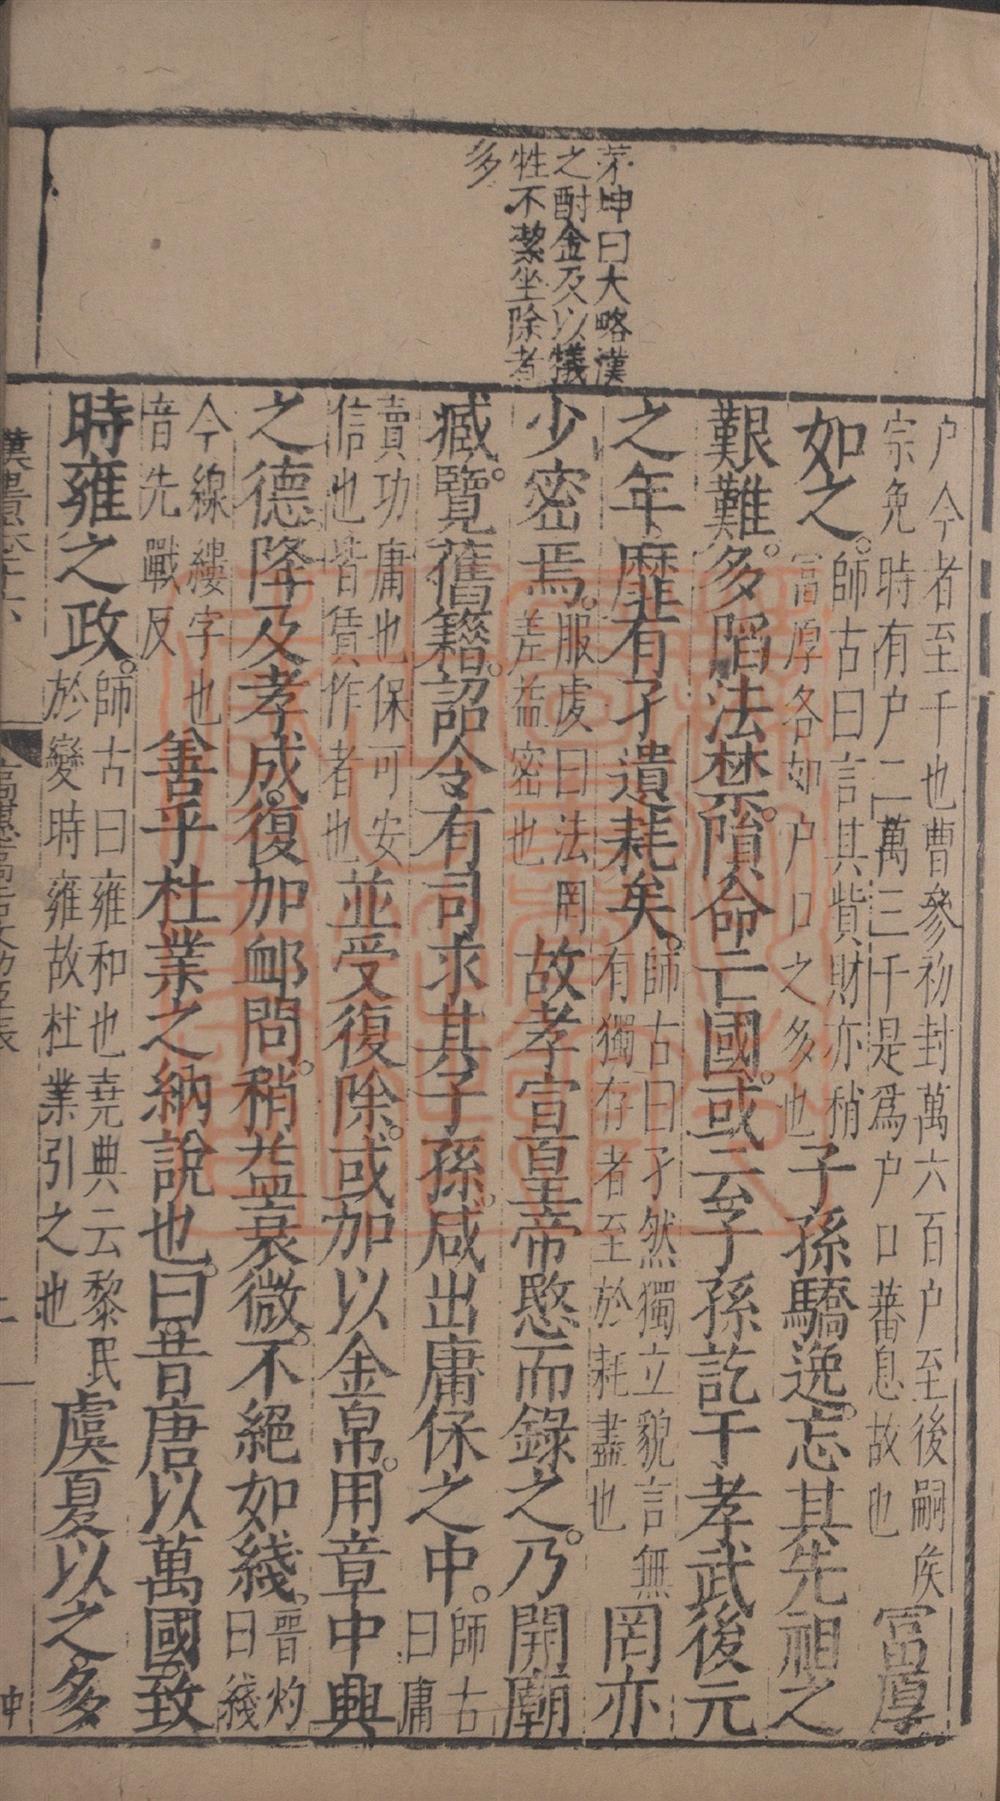 茅坤曰大略漢
之酎金及以犧
牲不潔坐除者
多
户今者至千也曹參初封萬六百户至後嗣侯
宗免時有户二萬三千是爲户口蕃息故也
富厚
如之。
師古曰言其貲財亦稍
富厚各如户口之多也
子孫驕逸。忘其先祖之
艱難。多陷法禁。隕命亡國。或云子孫訖于孝武後元
之年。靡有孑遺。耗矣。
師古曰孑然獨立貌言無
有獨存者至於耗盡也
罔亦
少密焉。
服虔曰法罔
差益密也
故孝宣皇帝愍而錄之。乃開廟
臧。覽舊籍。詔令有司求其子孫。咸出庸保之中。
師古
曰庸
賣功庸也保可安
信也皆賃作者也
並受復除。或加以金帛。用章中興
之德。降及孝成。復加卹問。稍益衰微。不絕如綫。
晉灼
曰綫
今線縷字也
音先戰反
善乎杜業之納說也。曰昔唐以萬國致
時雍之政。
師古曰雍和也堯典云黎民
於變時雍故杜業引之也
虞夏以之多
漢書卷十六
高惠高后文功臣表
坤